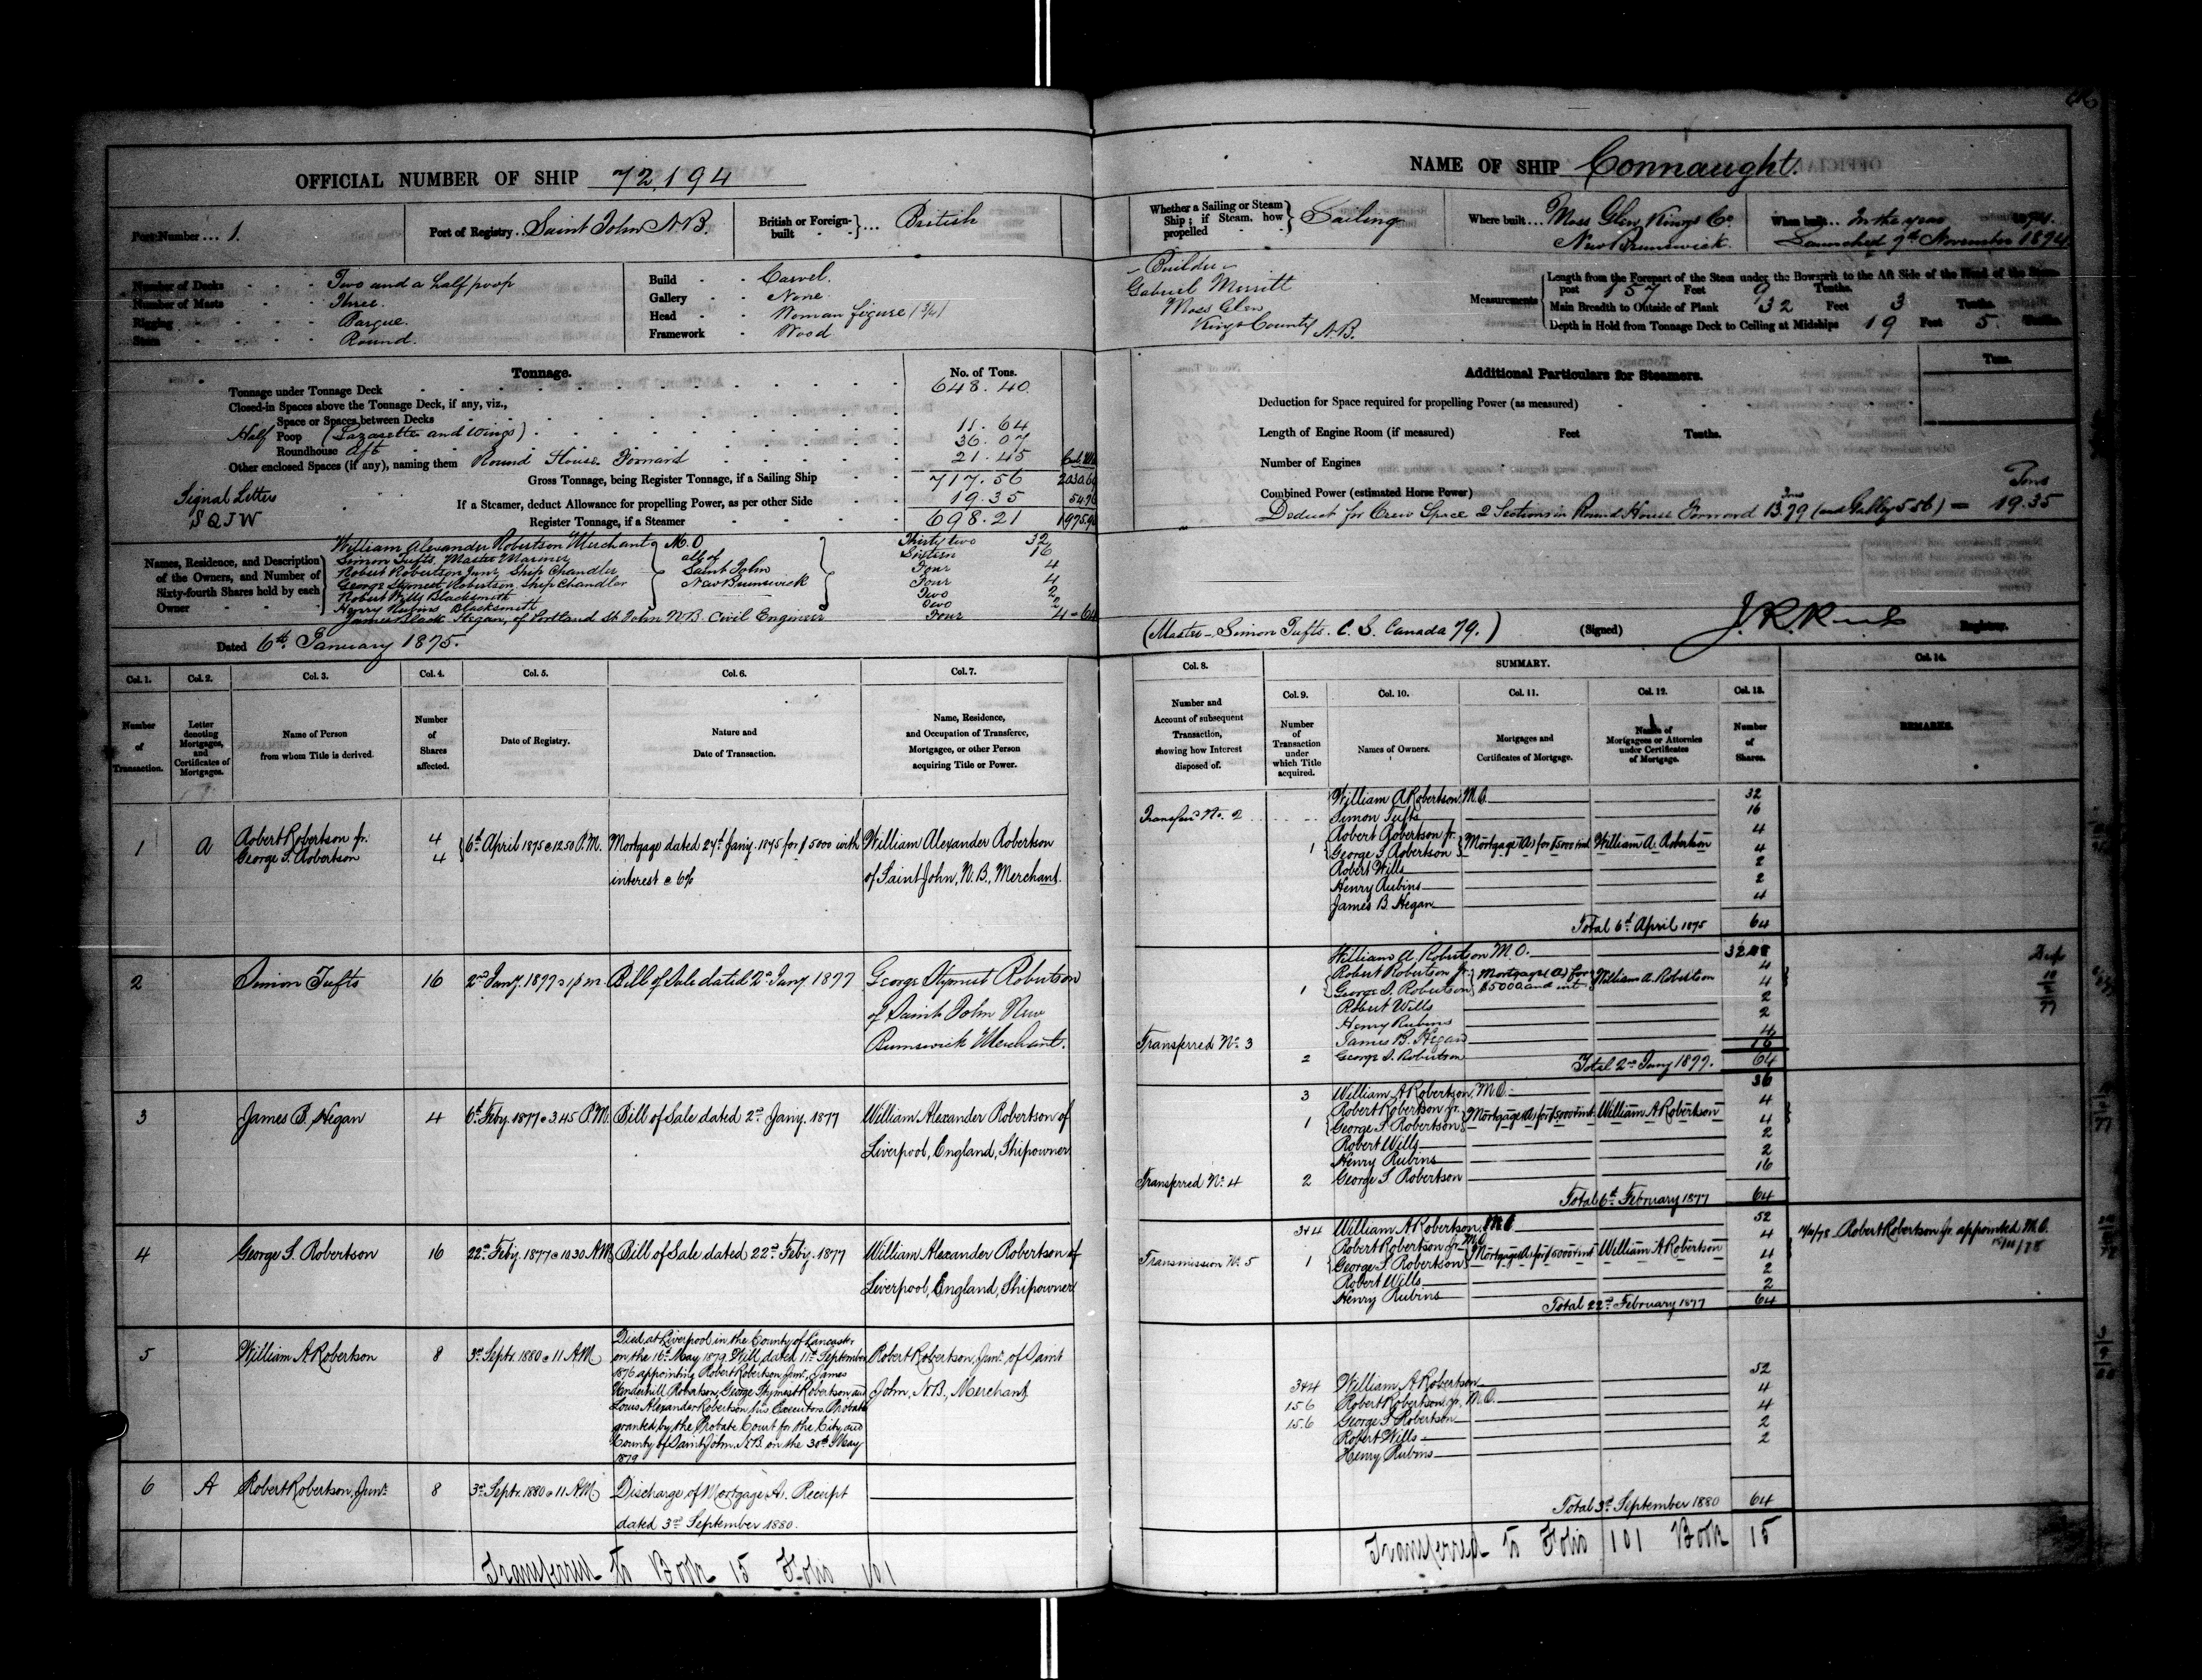 OFFICIAL NUMBER OF SHIP 72,194
Port Number ... 1.
Port of Registry .. Saint John N.B.
British or Foreign-built } ... British
Number of Decks - - - Two and a half poop
Number of Masts - - - Three.
Rigging - - - Barque.
Stern - - - Round.
Build - - Carvel.
Gallery - - None.
Head - - Woman figure (3/4)
Framework - - Wood
Tonnage.
No. of Tons.
Tonnage under Tonnage Deck 648.40
Closed-in Spaces above the Tonnage Deck, if any, viz.,
Space or Spaces between Decks
Half Poop (Lazarette and Wings) 11.64
Roundhouse Aft 36.07
Other enclosed Spaces (if any), naming them Round House Forward 21.45
Gross Tonnage, being Register Tonnage, if a Sailing Ship 717.56
Signal Letters
SQJW
If a Steamer, deduct Allowance for propelling Power, as per other Side 19.35
Register Tonnage, if a Steamer 698.21
Names, Residence, and Description of the Owners, and Number of Sixty-fourth Shares held by each Owner
William Alexander Robertson Merchant M.O Thirty two 32
Simon Tufts, Master Mariner Sixteen 16
Robert Robertson Junr. Ship Chandler Four 4
George Stymest Robertson, Ship Chandler Four 4
Robert Wills Blacksmith Two 2
Henry Rubins Blacksmith Two 2
all of Saint John New Brunswick
James Black Hegan, of Portland St John N.B. Civil Engineer Four 4 = 64
Dated 6th January 1875.
Col. 1. Col. 2. Col. 3. Col. 4. Col. 5. Col. 6. Col. 7.
Number of Transaction.
Letter denoting Mortgages, and Certificates of Mortgages.
Name of Person from whom Title is derived.
Number of Shares affected.
Date of Registry.
Nature and Date of Transaction.
Name, Residence, and Occupation of Transferee, Mortgagee, or other Person acquiring Title or Power.
1 A Robert Robertson Jr. 4
George S. Robertson 4
6th April 1875 @ 12.50 P.M.
Mortgage dated 27th Jany. 1875 for $5000 with
interest @ 6%
William Alexander Robertson
of Saint John, N.B., Merchant.
2 Simon Tufts 16 2nd Jany. 1877 @ 1 p m
Bill of Sale dated 2nd Jany 1877
George Stymest Robertson
of Saint John New
Brunswick Merchant.
3 James B. Hegan 4 6th Feby. 1877 @ 3.45 P.M.
Bill of Sale dated 2nd Jany. 1877
William Alexander Robertson of
Liverpool, England, Shipowner
4 George S. Robertson 16 22nd Feby. 1877 @ 10.30 A.M.
Bill of Sale dated 22nd Feby. 1877
William Alexander Robertson of
Liverpool, England, Shipowner
5 William A Robertson 8 3rd Septr. 1880 @ 11 A.M.
Died at Liverpool in the County of Lancaster
on the 16th May 1879. Will dated 11th September
1876 appointing Robert Robertson Junr., James
Vanderhill Robertson, George Stymest Robertson and
Louis Alexander Robertson his Executors. Probate
granted by the Probate Court for the City and
County of Saint John, N.B. on the 30th May
1879
Robert Robertson, Junr. of Saint
John, N.B., Merchant
6 A Robert Robertson, Junr. 8 3rd Septr. 1880 @ 11 A.M.
Discharge of Mortgage A. Receipt
dated 3rd September 1880.
Transferred to Book 15 Folio 101
NAME OF SHIP Connaught.
Whether a Sailing or Steam Ship; if Steam, how propelled } Sailing
Where built ... Moss Glen, Kings Co.
New Brunswick.
When built ... In the year 1874.
Launched 9th November 1874
- Builder -
Gabriel Merritt
Moss Glen
Kings County
N.B.
Measurements
Length from the Forepart of the Stem under the Bowsprit to the Aft Side of the Head of the Stern-post 157 Feet 9 Tenths.
Main Breadth to Outside of Plank 32 Feet 3 Tenths.
Depth in Hold from Tonnage Deck to Ceiling at Midships 19 Feet 5 Tenths.
Additional Particulars for Steamers.
Tons.
Deduction for Space required for propelling Power (as measured)
Length of Engine Room (if measured) Feet Tenths.
Number of Engines
Combined Power (estimated Horse Power)
Tons
Deduct for Crew Space 2 Sections in Round House Forward 13.79 (and Galley 5.56) = 19.35
(Master - Simon Tufts. C. S. Canada 79.)
(Signed) Registrar.
Col. 8. SUMMARY. Col. 14.
Col. 9. Col. 10. Col. 11. Col. 12. Col. 13.
Number and Account of subsequent Transaction, showing how Interest disposed of.
Number of Transaction under which Title acquired.
Names of Owners.
Mortgages and Certificates of Mortgage.
Names of Mortgagees or Attornies under Certificates of Mortgage.
Number of Shares.
REMARKS.
William A Robertson, M.O. 32
Transferred No. 2 Simon Tufts 16
Robert Robertson Jr. 4
1 George S Robertson Mortgage (A) for $5000 & int William A. Robertson 4
Robert Wills 2
Henry Rubins 2
James B. Hegan 4
Total 6th April 1875 64
William A. Robertson M.O. 32
Robert Robertson Jr. 4
1 George S. Robertson Mortgage (A) for $5000 and int William A. Robertson 4
Robert Wills 2
Henry Rubins 2
Transferred No. 3 James B. Hegan 4
2 George S. Robertson 16
Total 2nd Jany 1877. 64
3 William A Robertson, M.O. 36
Robert Robertson Jr. 4
1 George S. Robertson Mortgage (A) for $5000 & int William A Robertson 4
Robert Wills 2
Henry Rubins 2
Transferred No. 4 2 George S Robertson 16
Total 6th February 1877 64
3+4 William A Robertson, M.O 52
Robert Robertson Jr. M.O. 4
Transmission No. 5 1 George S. Robertson Mortgage (A) for $5000 & int William A Robertson 4
Robert Wills 2
Henry Rubins 2
Total 22nd February 1877 64
Robert Robertson Jr. appointed M.O.
3+4 William A Robertson 52
1 5 6 Robert Robertson, Jr. M.O. 4
1 5 6 George S Robertson 4
Robert Wills 2
Henry Rubins 2
Total 3rd September 1880 64
Transferred to Folio 101 Book 15